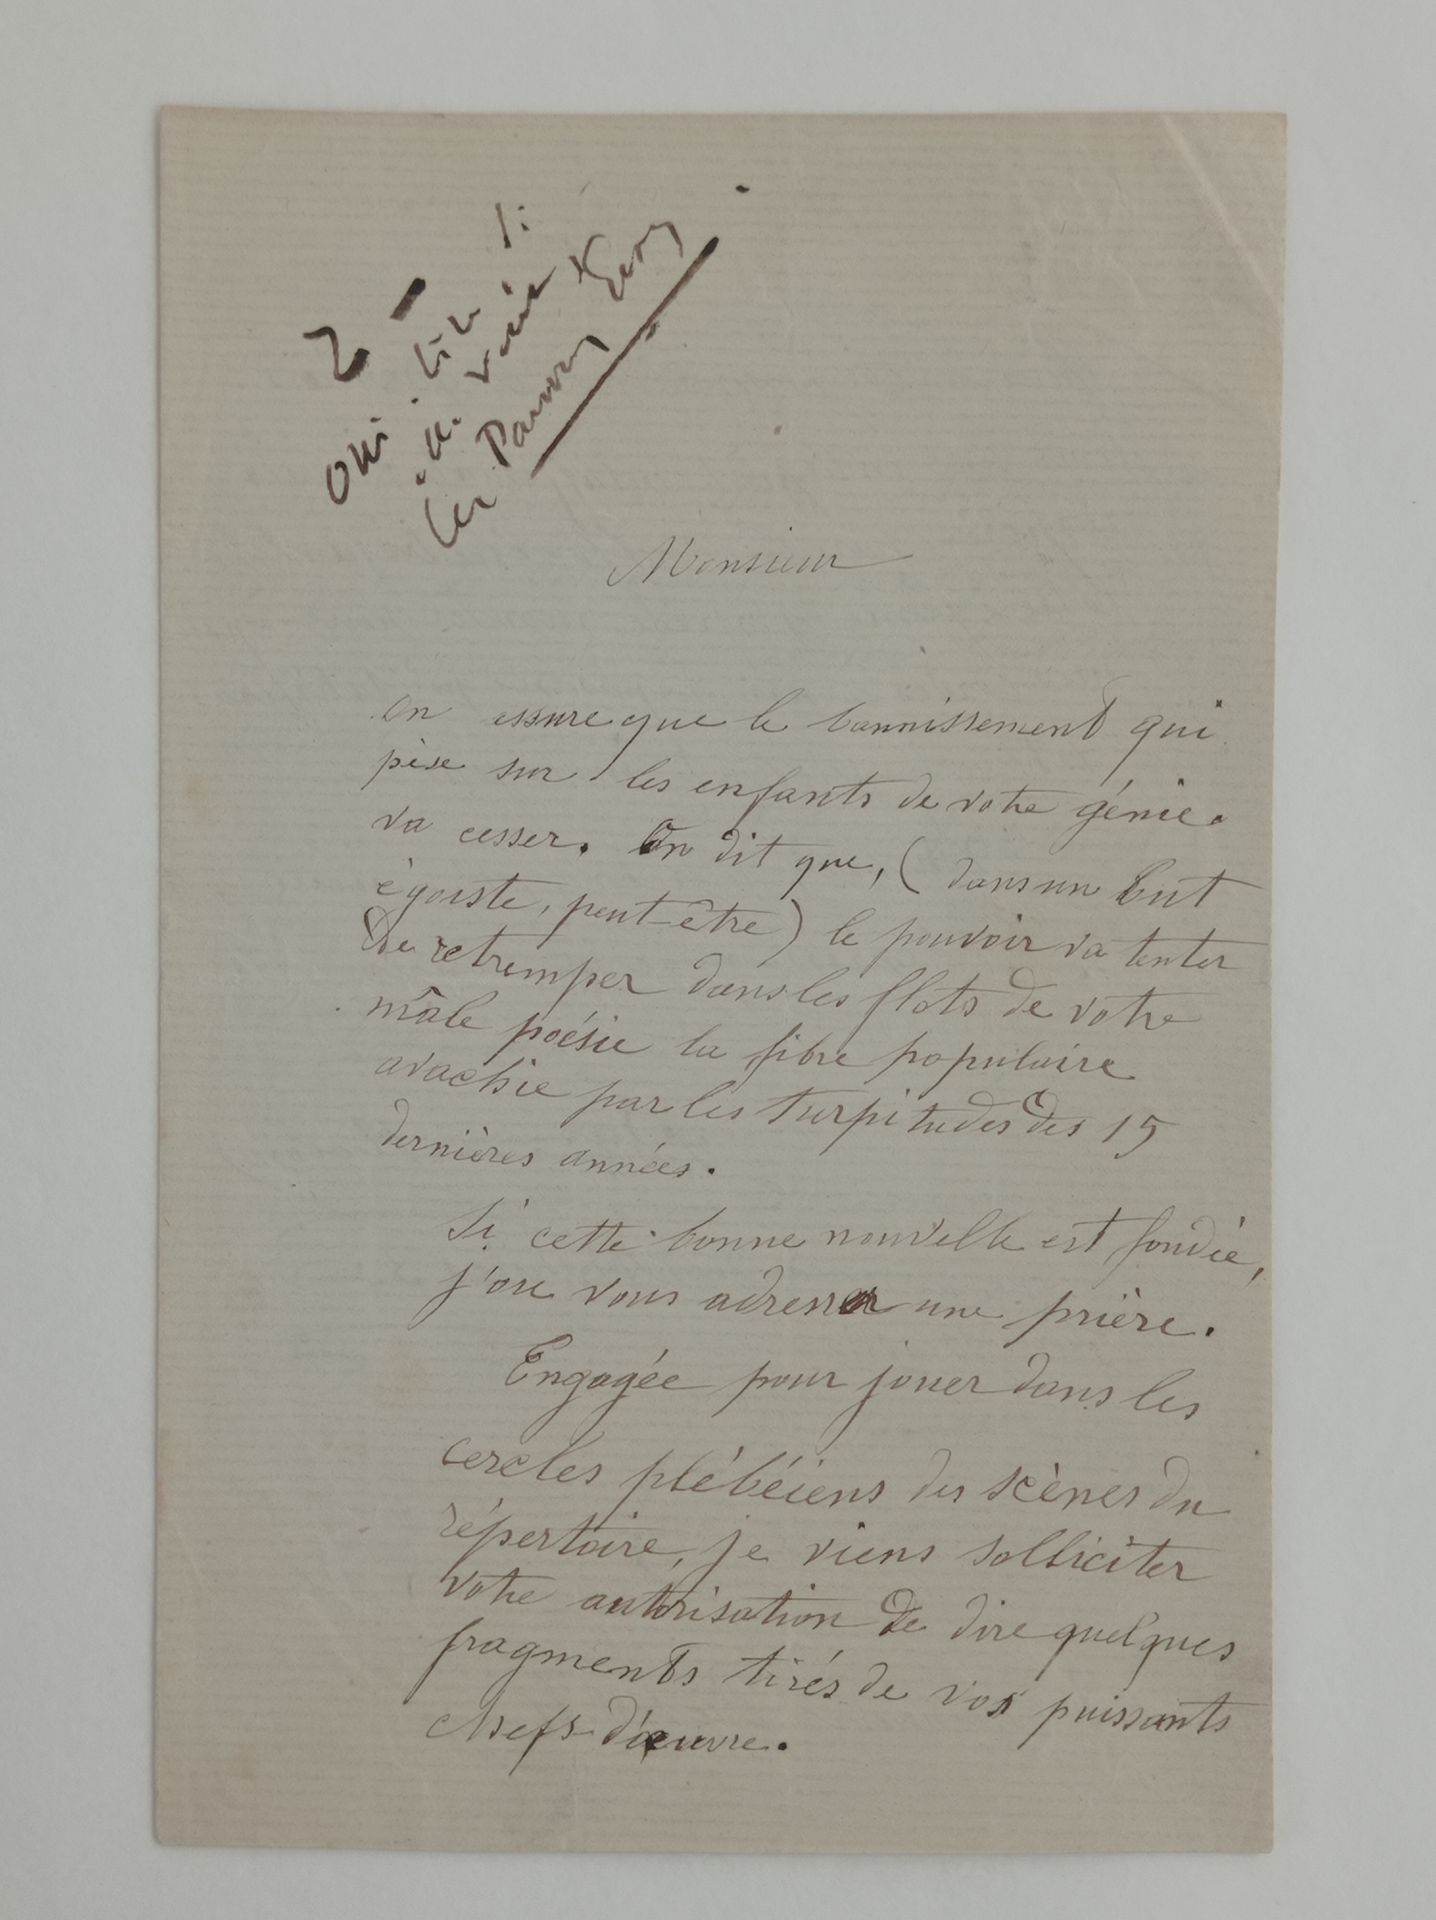 2 —
oui
Les Pauvres Gens
Monsieur
on assure que le bannissement qui
pèse sur les enfants de votre génie
va cesser. On dit que, (dans un but
égoiste, peut-être) le pouvoir va tenter
de retremper dans les flots de votre
mâle poésie la fibre populaire
avachie par les turpitudes des 15
dernières années.
Si cette bonne nouvelle est fondée,
j'ose vous adresser une prière.
Engagée pour jouer dans les
cercles plébéiens des scènes du
répertoire, je viens solliciter
votre autorisation de dire quelques
fragments tirés de vos puissants
chefs d'œuvre.